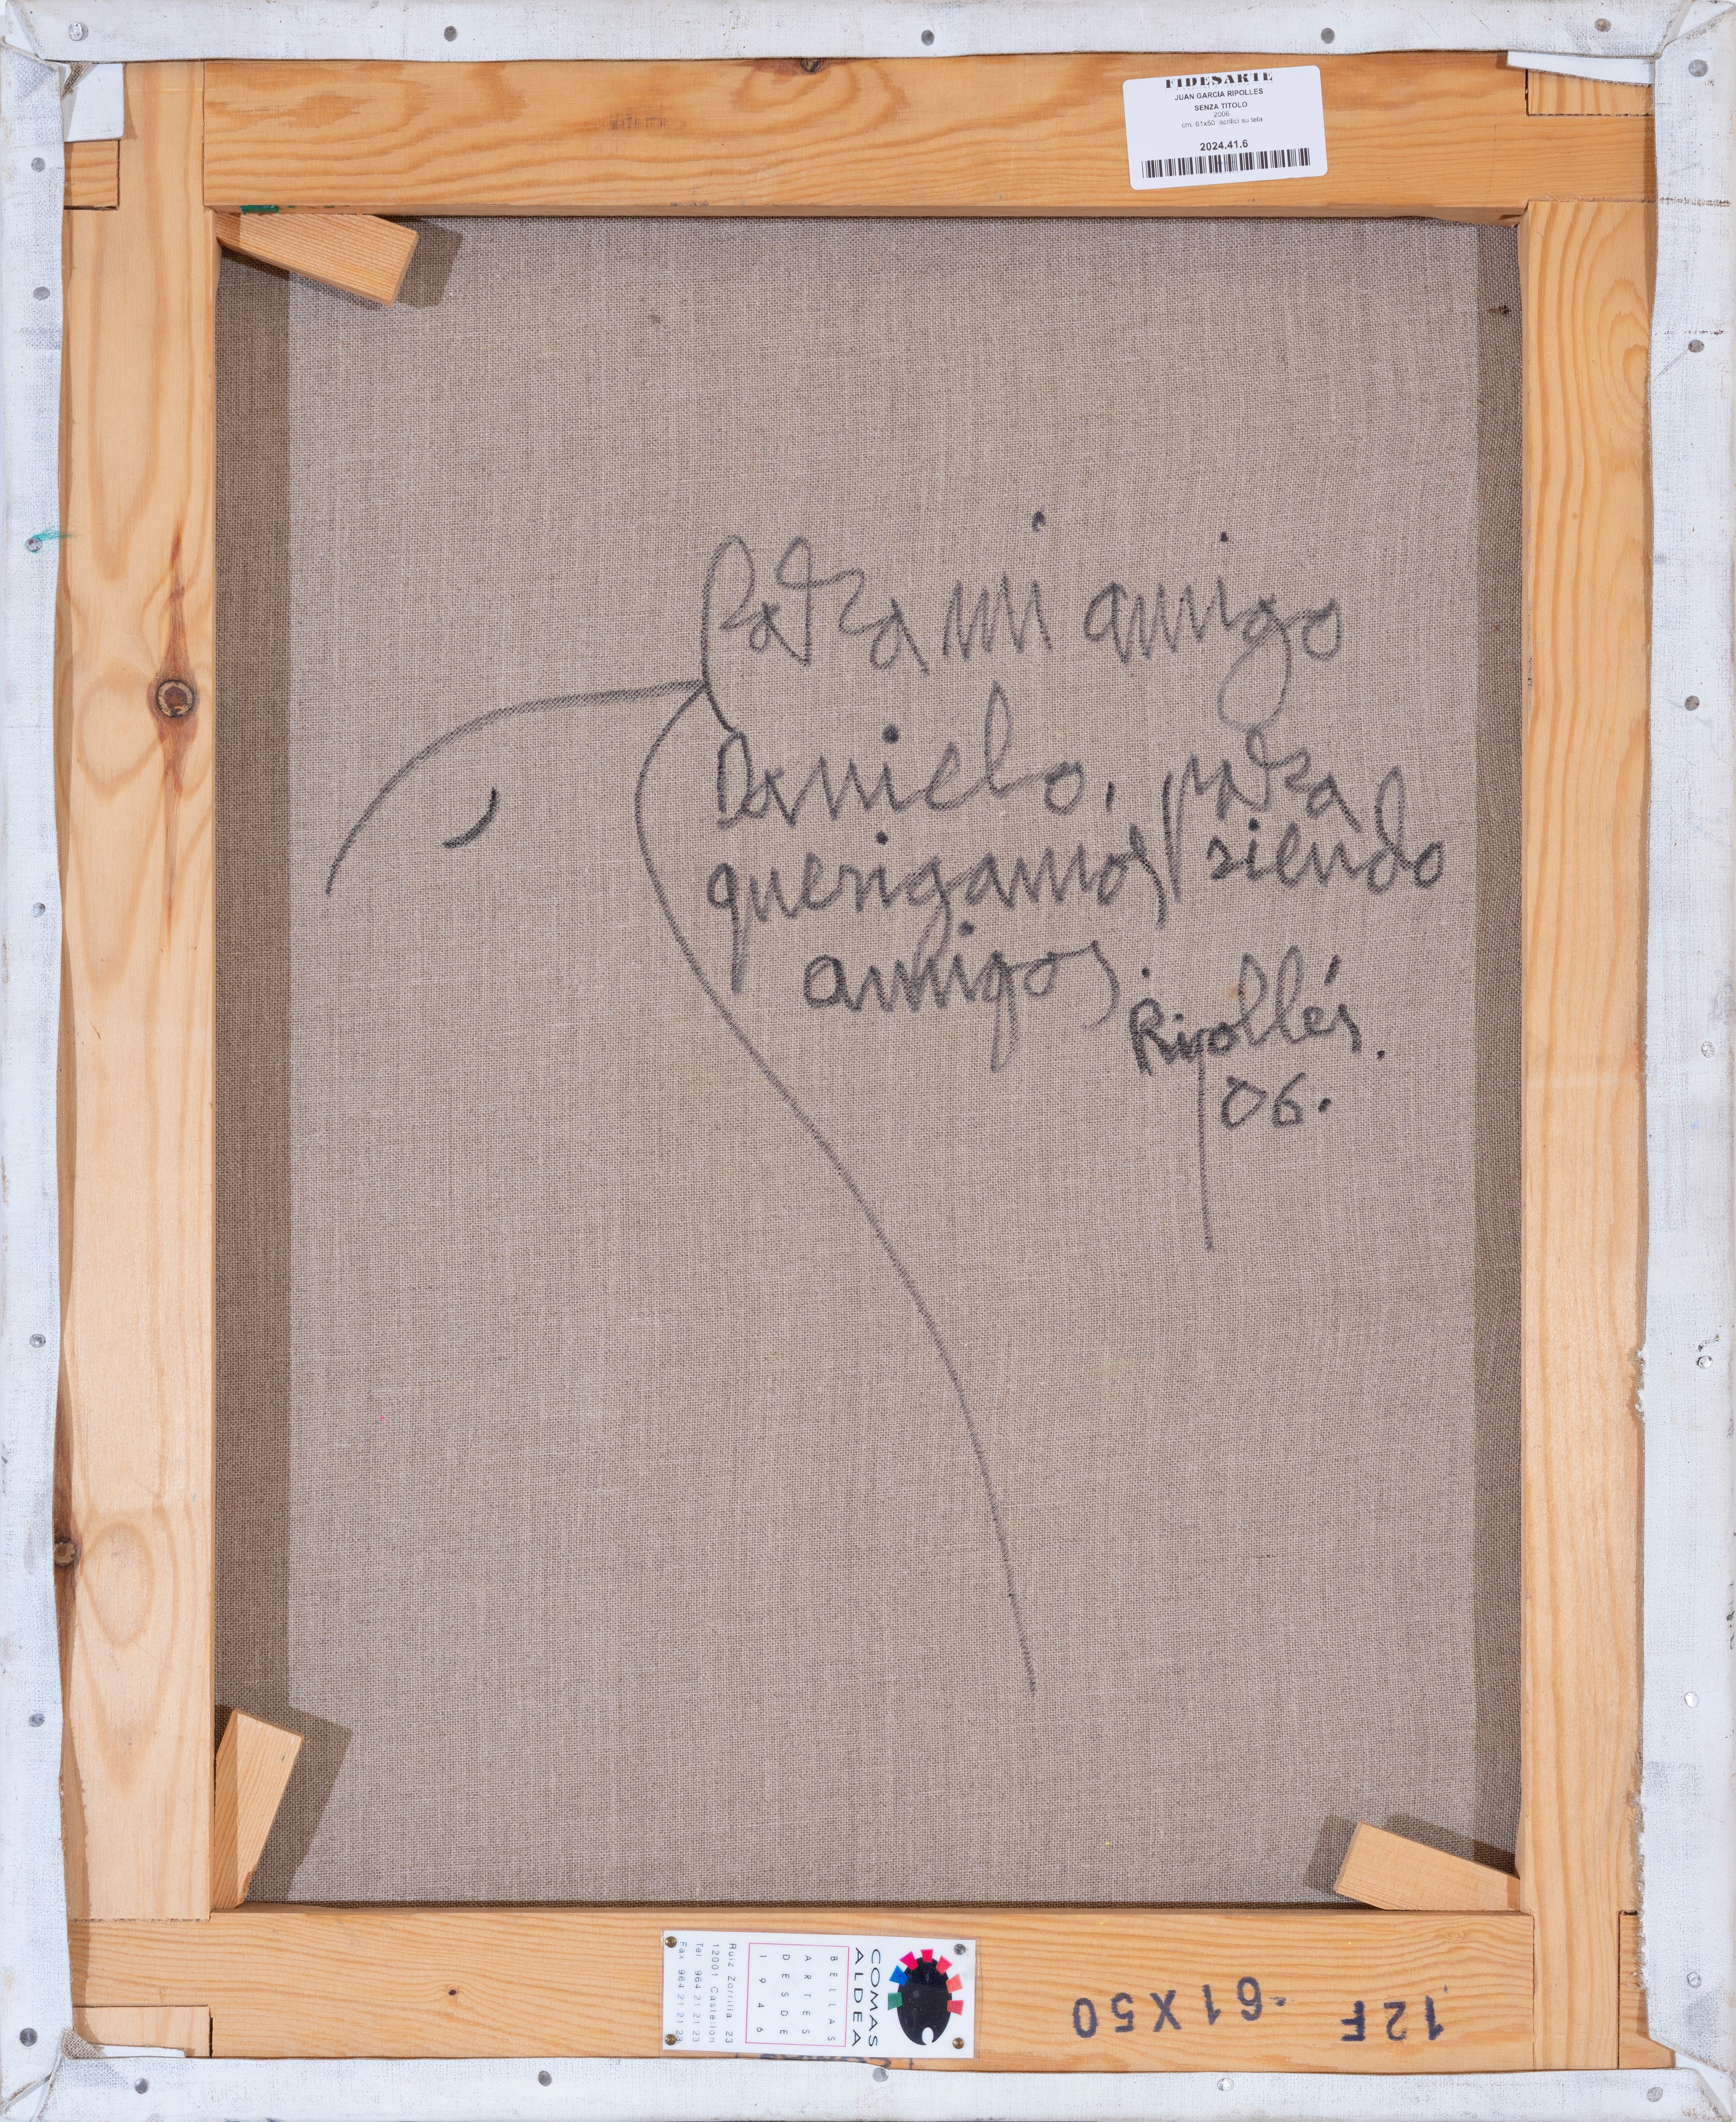 FIDESARTE
JUAN GARCIA RIPOLLES
SENZA TITOLO
2006
cm. 61x50 acrilici su tela
2024.41.6
Para mi amigo
Danielo, para
siendo
amigos.
Ripollés.
06.
COMAS
ALDEA
BELLAS
ARTES
DESDE
1946
Ruiz Zorrilla 23
12001 Castellón
Tel 964 21 21 23
Fax 964 21 21 23
12F -61X50